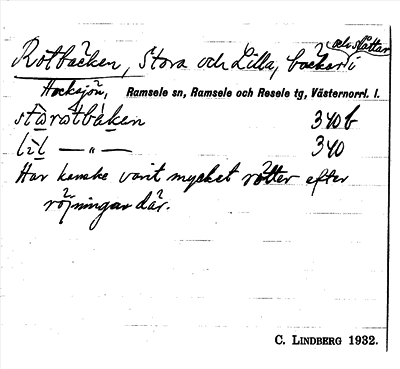 Rotbäcken, Stora och Lilla, bäckar i
och slåttar
Hocksjön, Ramsele sn, Ramsele och Resele tg, Västernorrl. l.
340b
340
Har kanske varit mycket rötter efter
röjningar där.
C. Lindberg 1932.